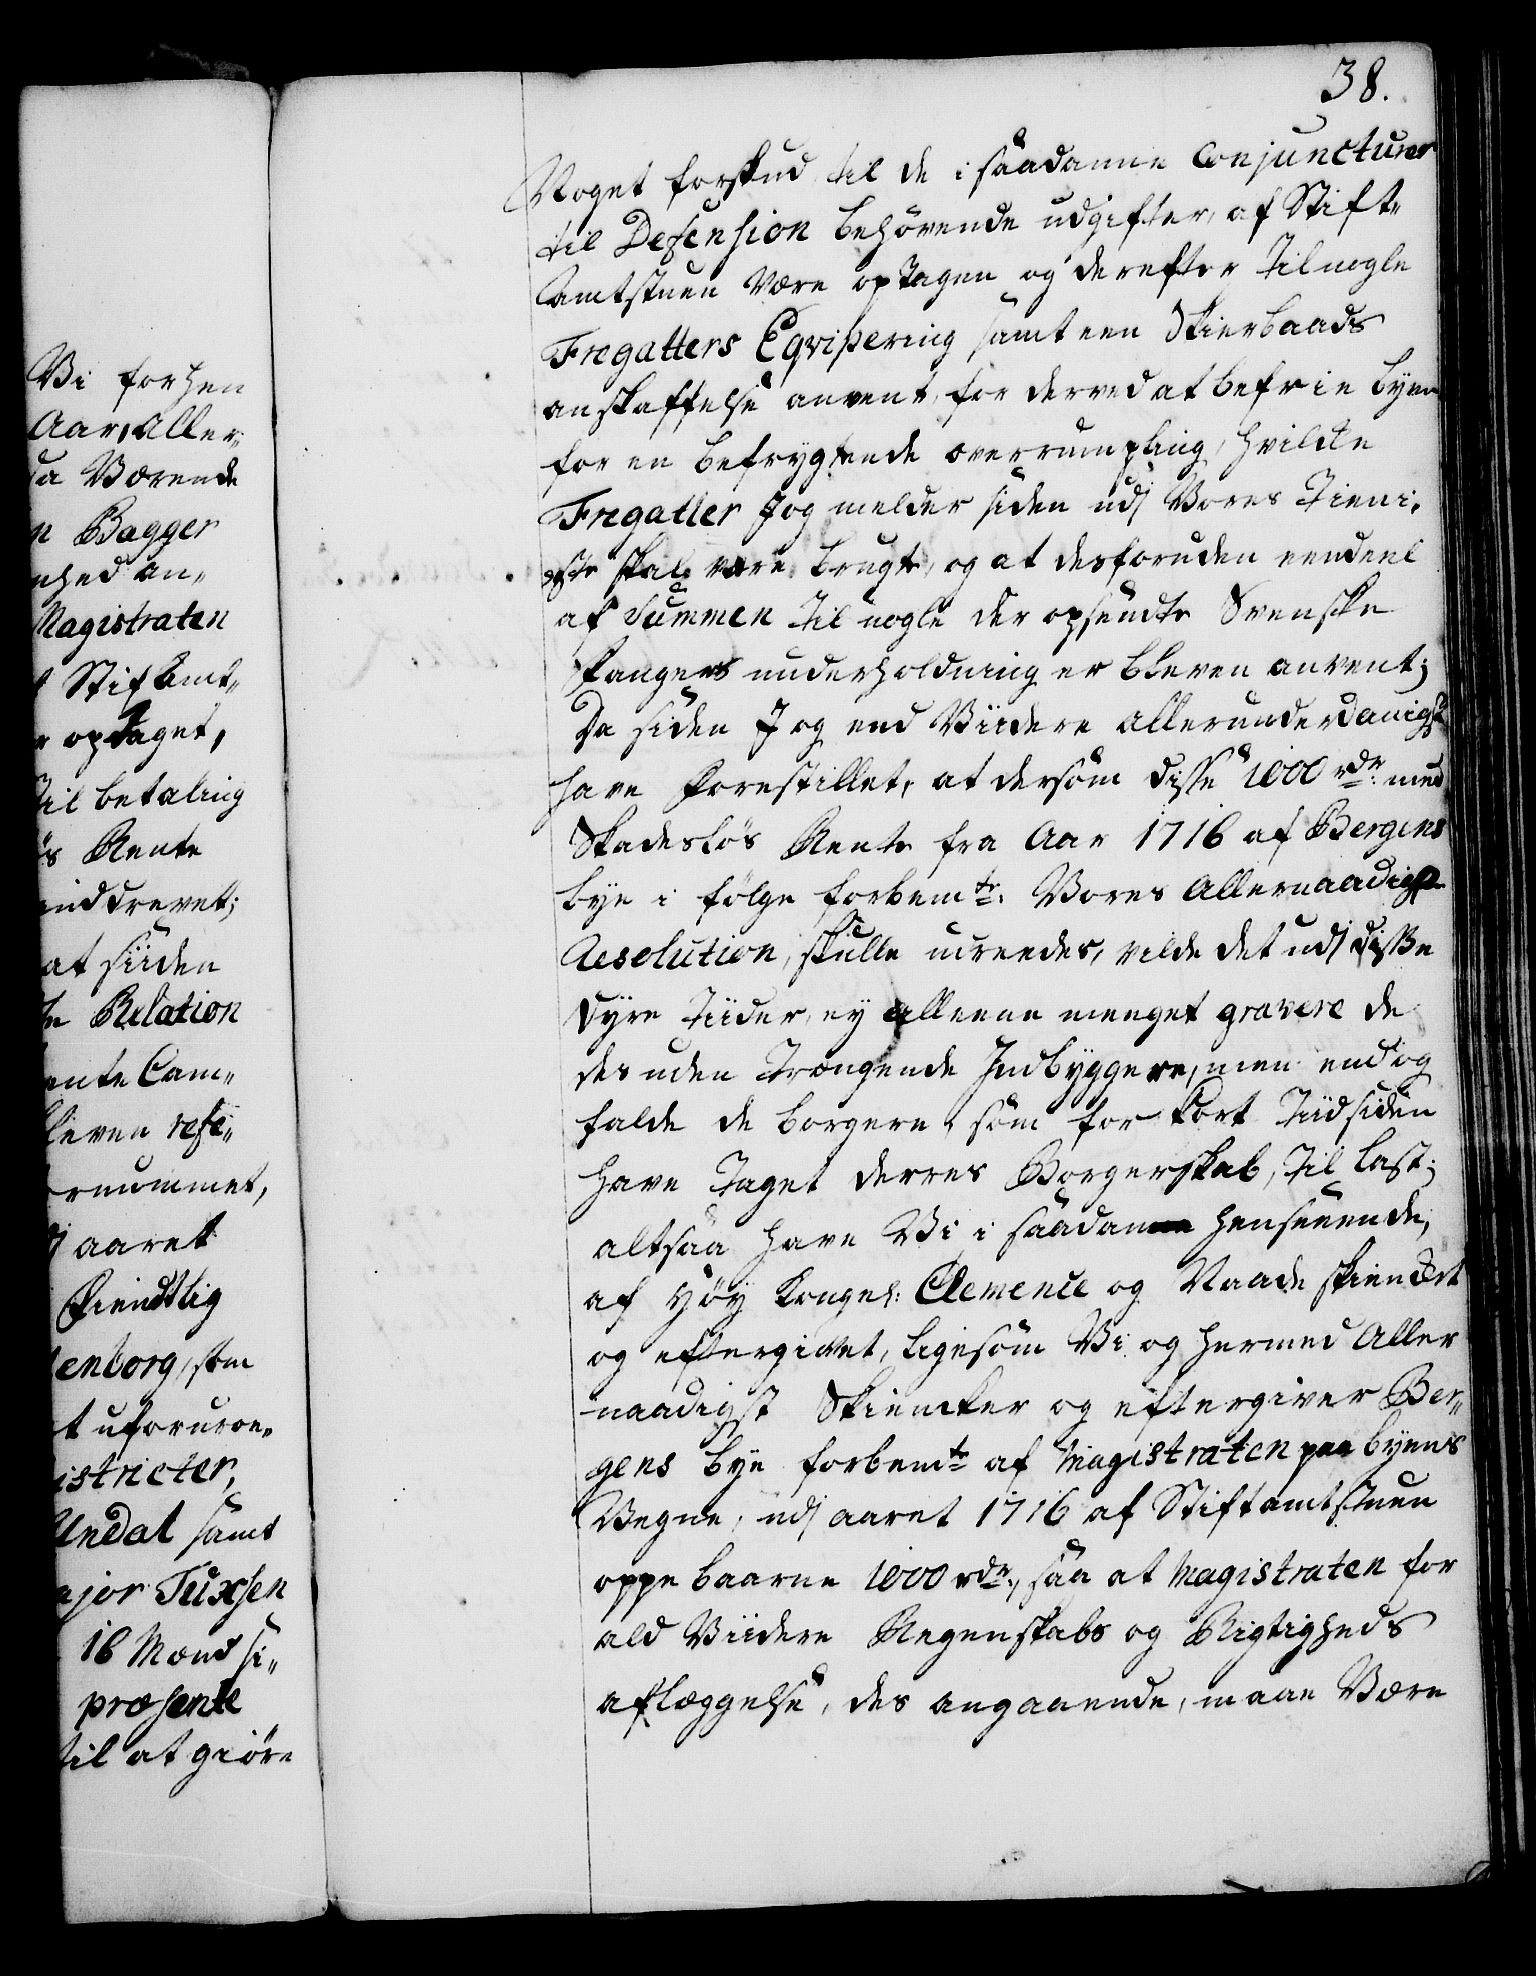 Vi forhen
Aar, Aller„
da Værende
n Bagger
nhed an„
Magistraten
f Stif Amt„
r optaget,
til betaling
øs Rente
inddrevet;
at siiden
te Relation
ente Cam„
bleven refe„
rnummet,
j aaret
fiendtlig
enborg, som
t uforuroe„
istricter,
Undal samt
ajor Tuxsen
16 Mænd si„
præsente
til at giøre
38.
Noget forskud til de i saadanne Conjuncturer
til Defension behövende udgifter, af Stift„
Amtstuen være optagen og derefter til nogle
Fregatters Eqvipering samt een Skierbaads
anskaffelse anvent, for derved at befrie byen
for en befrygtende overrumpling, hvilcke
Fregatter J og melder siden udj Vores Tieni„
ste skal være brugt, og at desforuden eendeel
af Summen til nogle der opsendte Svenske
fangers underholdning er bleven anvent;
Da siden J og end Viidere allerunderdanigst
have forestillet, at dersom disse 1000 rdr. med
Skadesløs Rente fra Aar 1716 af Bergens
bye i følge forbemte. Vores allernaadigste
Resolution, skulle udreedes, vilde det udj disse
dyre tiider, ey alleene meget gravere de
des uden trængende Indbyggere, men endog
falde de borgere, som for kort Tiid siden
have taget deres Borgerskab, til last;
altsaa have Vi i saadan henseende,
af Høy Kongel: Clemence og Naade skiencket
og eftergivet, ligesom Vi og hermed Aller
naadigst Skiencker og eftergiver Ber„
gens bye forbemte af Magistraten paa byens
Vegne, udj aaret 1716 af Stiftamtstuen
oppebaarne 1000 rdr., saa at Magistraten for
ald Viidere Regenskabs og Rigtigheds
aflæggelse, des angaaende, maae Være